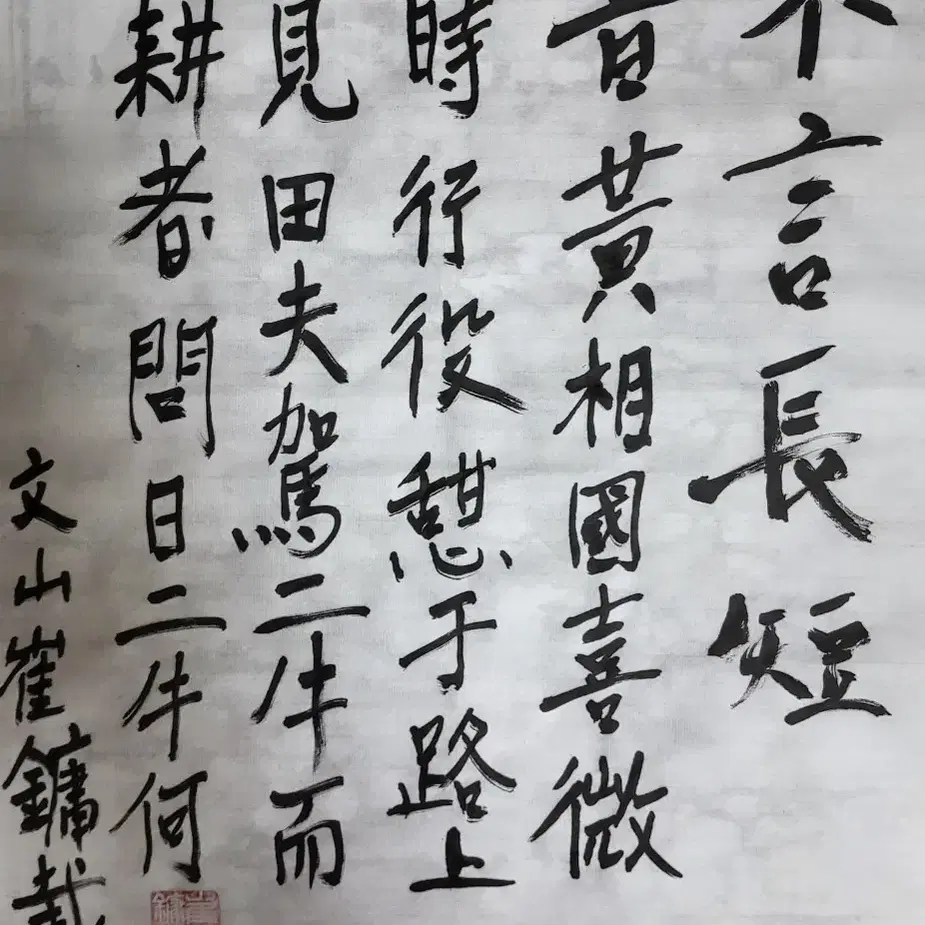 不言長短
昔黃相國喜微
時行役憩于路上
見田夫駕二牛而
耕者問曰二牛何
文山崔鏞